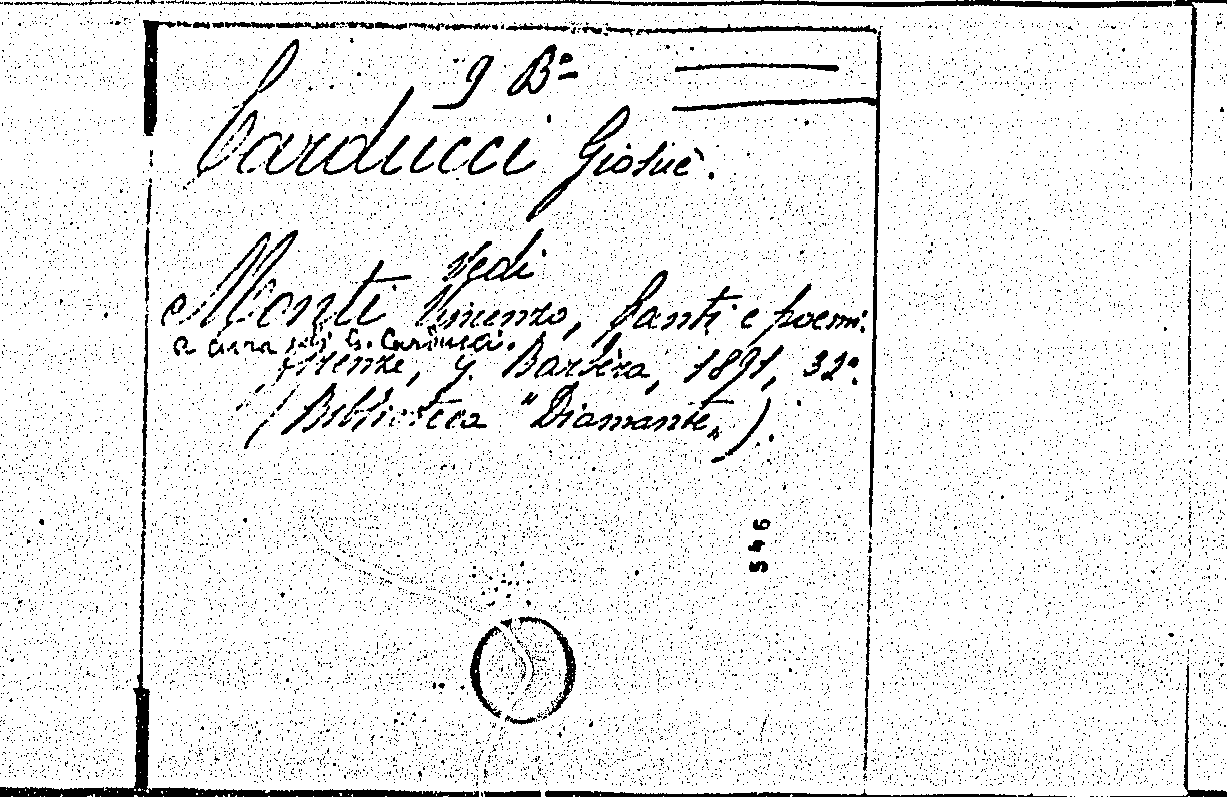 9 Bª
Carducci Giosuè.
Vedi
Monti Vincenzo, Canti e poemi.
a cura di G. Carducci.
Firenze, G. Barbèra, 1891, 32º.
(Biblioteca "Diamante„).
546